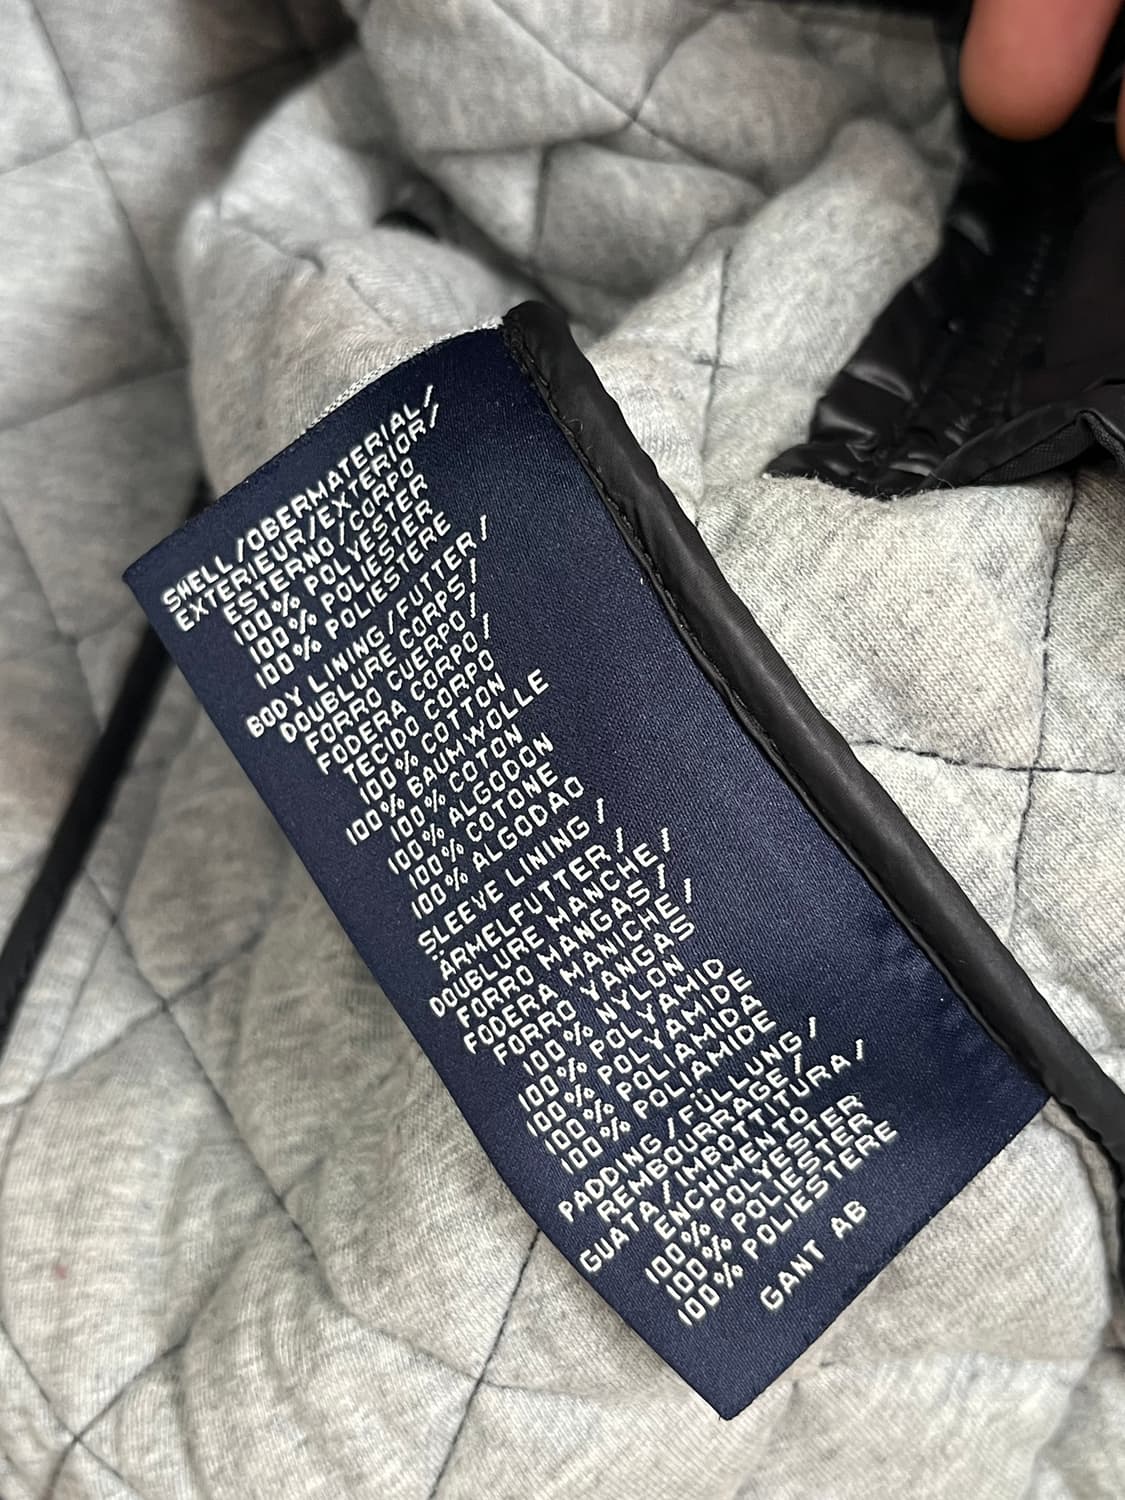 SHELL/OBERMATERIAL/
EXTERIEUR/EXTERIOR/
ESTERNO/CORPO
100% POLYESTER
100% POLIESTER
100% POLIESTERE
BODY LINING/FUTTER/
DOUBLURE CORPS/
FORRO CUERPO/
FODERA CORPO/
TECIDO CORPO
100% COTTON
100% BAUMWOLLE
100% COTON
100% ALGODON
100% COTONE
100% ALGODAO
SLEEVE LINING/
ÄRMELFUTTER/
DOUBLURE MANCHE/
FORRO MANGAS/
FODERA MANICHE/
FORRO YANGAS
100% NYLON
100% POLYAMID
100% POLYAMIDE
100% POLIAMIDA
100% POLIAMIDE
PADDING/FÜLLUNG/
REMBOURRAGE/
GUATA/IMBOTTITURA/
ENCHIMENTO
100% POLYESTER
100% POLIESTER
100% POLIESTERE
GANT AB